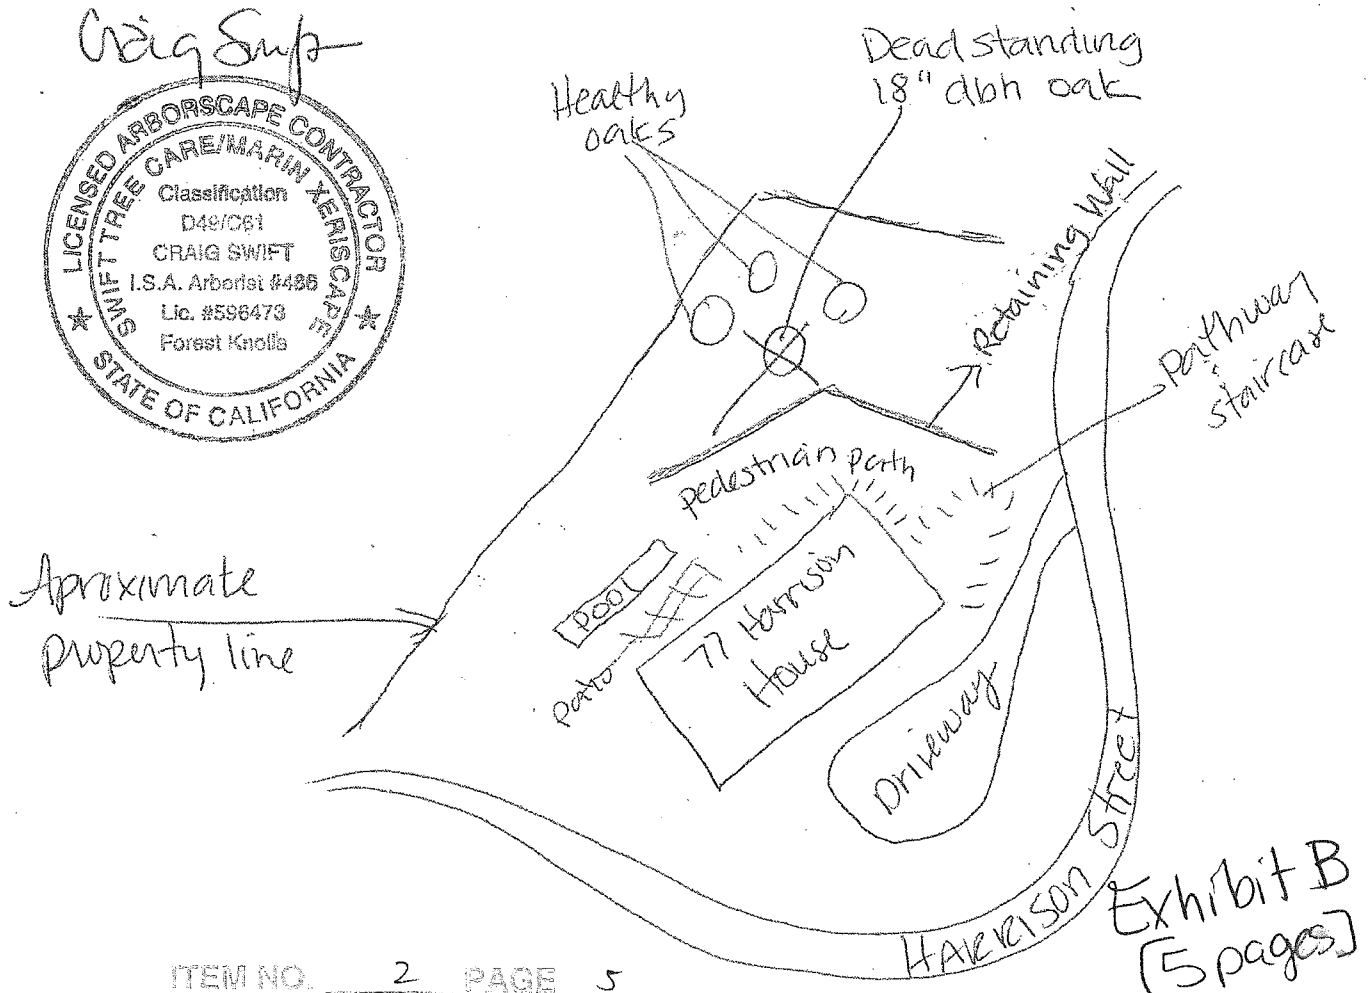 Craig Swift
LICENSED ARBORSCAPE CONTRACTOR
SWIFT TREE CARE/MARIN XERISCAPE
Classification
D49/C61
CRAIG SWIFT
I.S.A. Arborist #486
Lic. #596473
Forest Knolls
STATE OF CALIFORNIA
Healthy
oaks
Dead standing
18" dbh oak
Retaining Wall
Pathway
staircase
pedestrian path
Aproximate
property line
Pool
patio
77 Harrison
House
Driveway
HARRISON Street
Exhibit B
[5 pages]
ITEM NO. 2 PAGE 5